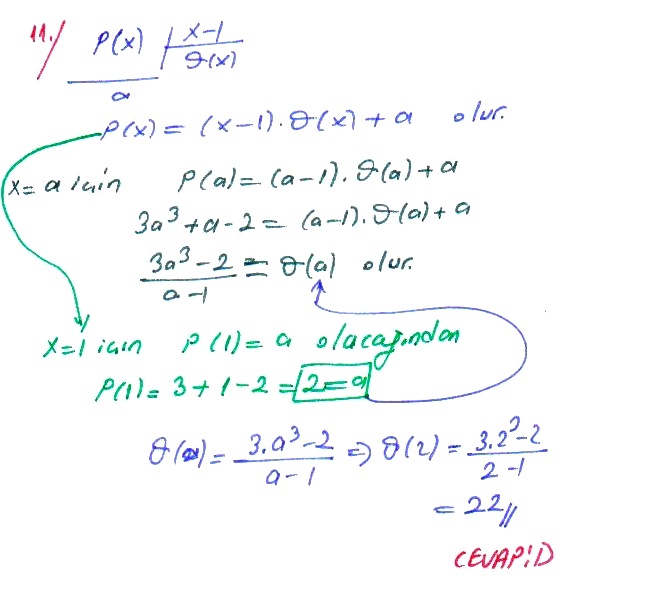 11./ P(x) | x-1
ϑ(x)
a
P(x) = (x-1).ϑ(x) + a olur.
x = a için P(a) = (a-1).ϑ(a) + a
3a³ + a - 2 = (a-1).ϑ(a) + a
3a³ - 2 = ϑ(a) olur.
a - 1
x=1 için P(1) = a olacağından
P(1) = 3 + 1 - 2 = 2 = a
ϑ(a) = 3.a³-2 / a-1 ⇒ ϑ(2) = 3.2³-2 / 2-1
= 22//
CEVAP: D